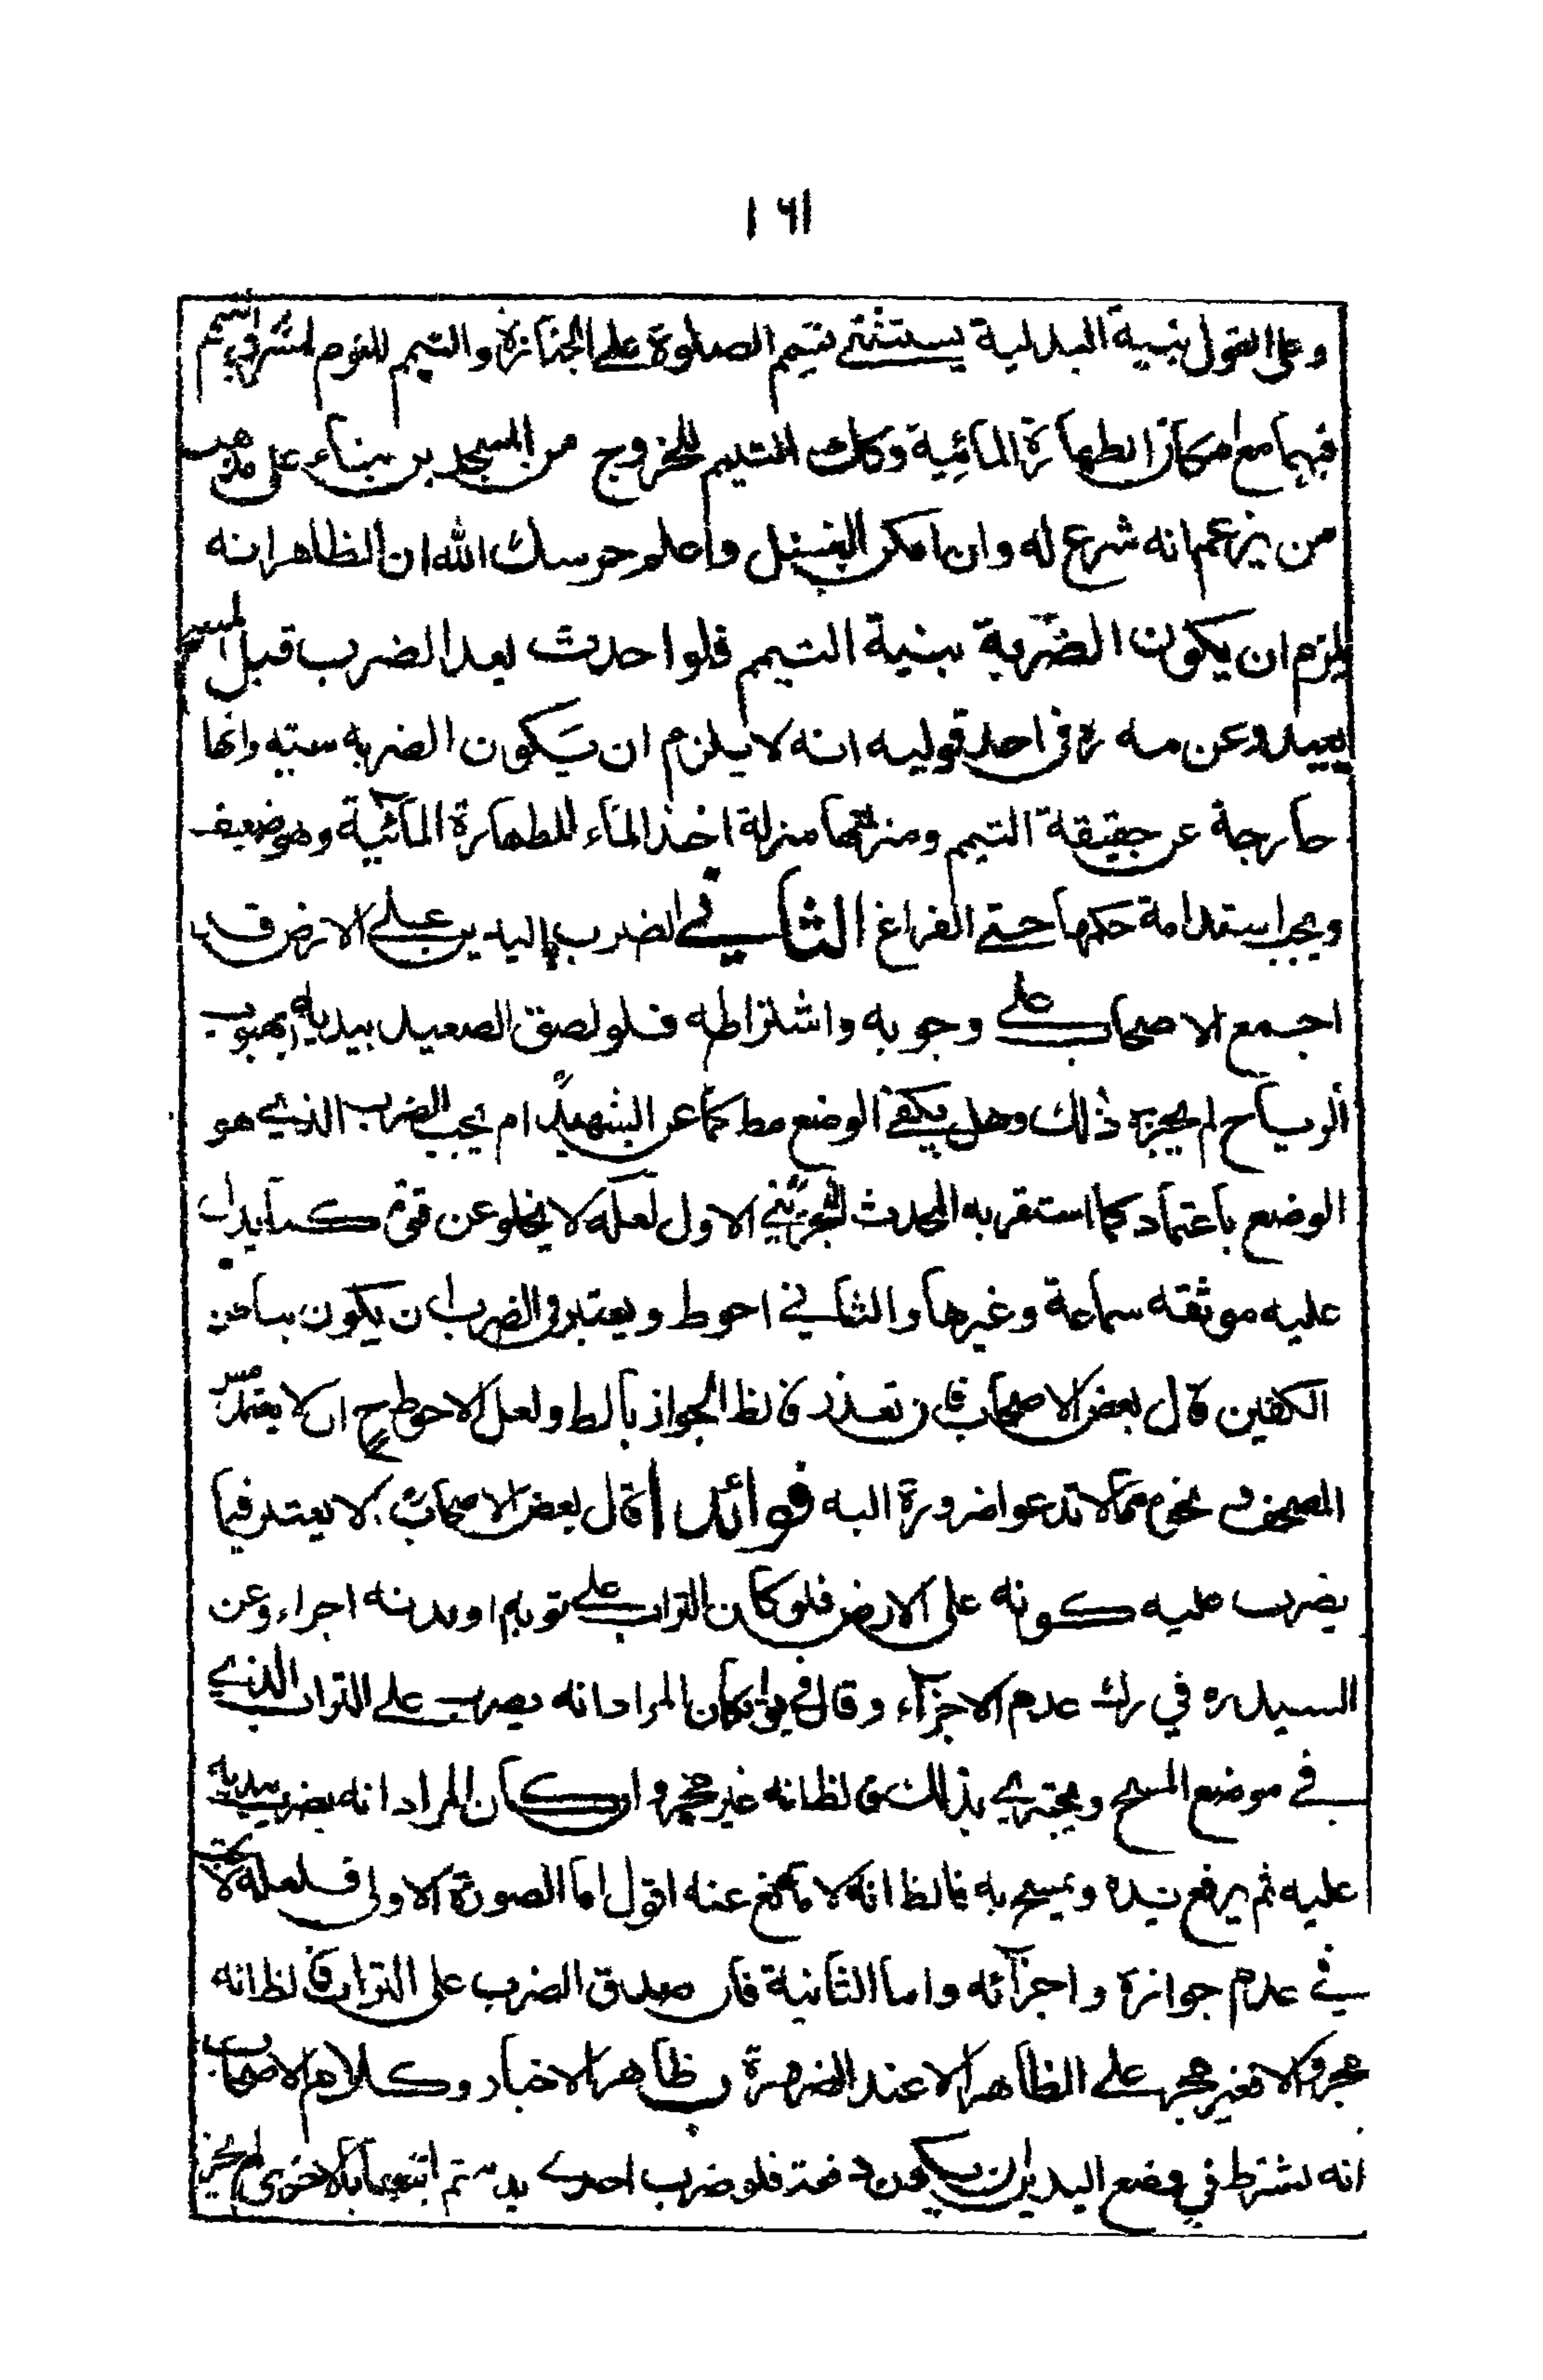 ١٦١
وعلى القول بنية البدلية يستثنى تيمم الصلوة على الجنازة والتيمم للنوم لمشروعيتهم
فيهما مع امكان الطهارة المائية وكك التيمم للخروج من المسجدين بناء على مذهب
من يزعم انه شرع له وان امكن الغسل واعلم حرسك الله ان الظاهر انه
يلزم ان يكون الضربة بنية التيمم فلو احدث بعد الضرب قبل المسح
يعيد وعن مه ره في احد قوليه انه لا يلزم ان يكون الضربه وانها
خارجة عن حقيقة التيمم ومنزلتها منزلة اخذ الماء للطهارة المائية وهو ضعيف
ويجب استدامة حكمها حتى الفراغ الثاني الضرب باليدين على الارض قد
اجمع الاصحاب على وجوبه واشتراطه فلو لصق الصعيد بيديه بهبوب
الرياح لم يجزه ذلك وهل يكفي الوضع مط كما عن الشهيد ام يجب الضرب الذي هو
الوضع باعتماد كما استقربه المحدث البحريني الاول لعله لا يخلو عن قوة كما يدل
عليه موثقه سماعة وغيرها والثاني احوط ويعتبر في الضرب ان يكون بباطن
الكفين قال بعض الاصحاب فان تعذر فالظ الجواز بالظ ولعل الاحوط ح ان لا يعتمد مس
المصحف ونحوه مما لا تدعوا ضرورة اليه فوائد ا قال بعض الاصحاب لا يعتبر فيما
يضرب عليه كونه على الارض فلو كان التراب على ثوبه او بدنه اجزاء وعن
السيد ره في رك عدم الاجزاء وقال في ان كان المراد انه يضرب على التراب الذي
في موضع المسح ويجتزي بذلك فالظ انه غير مجز وان كان المراد انه يضرب بيديه
عليه ثم يرفع يده ويمسح به فالظ انه لا مانع عنه اقول اما الصورة الاولى فلعله لا شك
في عدم جوازه واجزائه واما الثانية فان صدق الضرب على التراب فالظ انه
مجز والا فغير مجز على الظاهر الا عند الضرورة ب ظاهر الاخبار وكلام الاصحاب
انه يشترط في وضع اليدين ان يكون دفعة فلو ضرب احدى يديه ثم اتبعها بالاخرى لم يجز